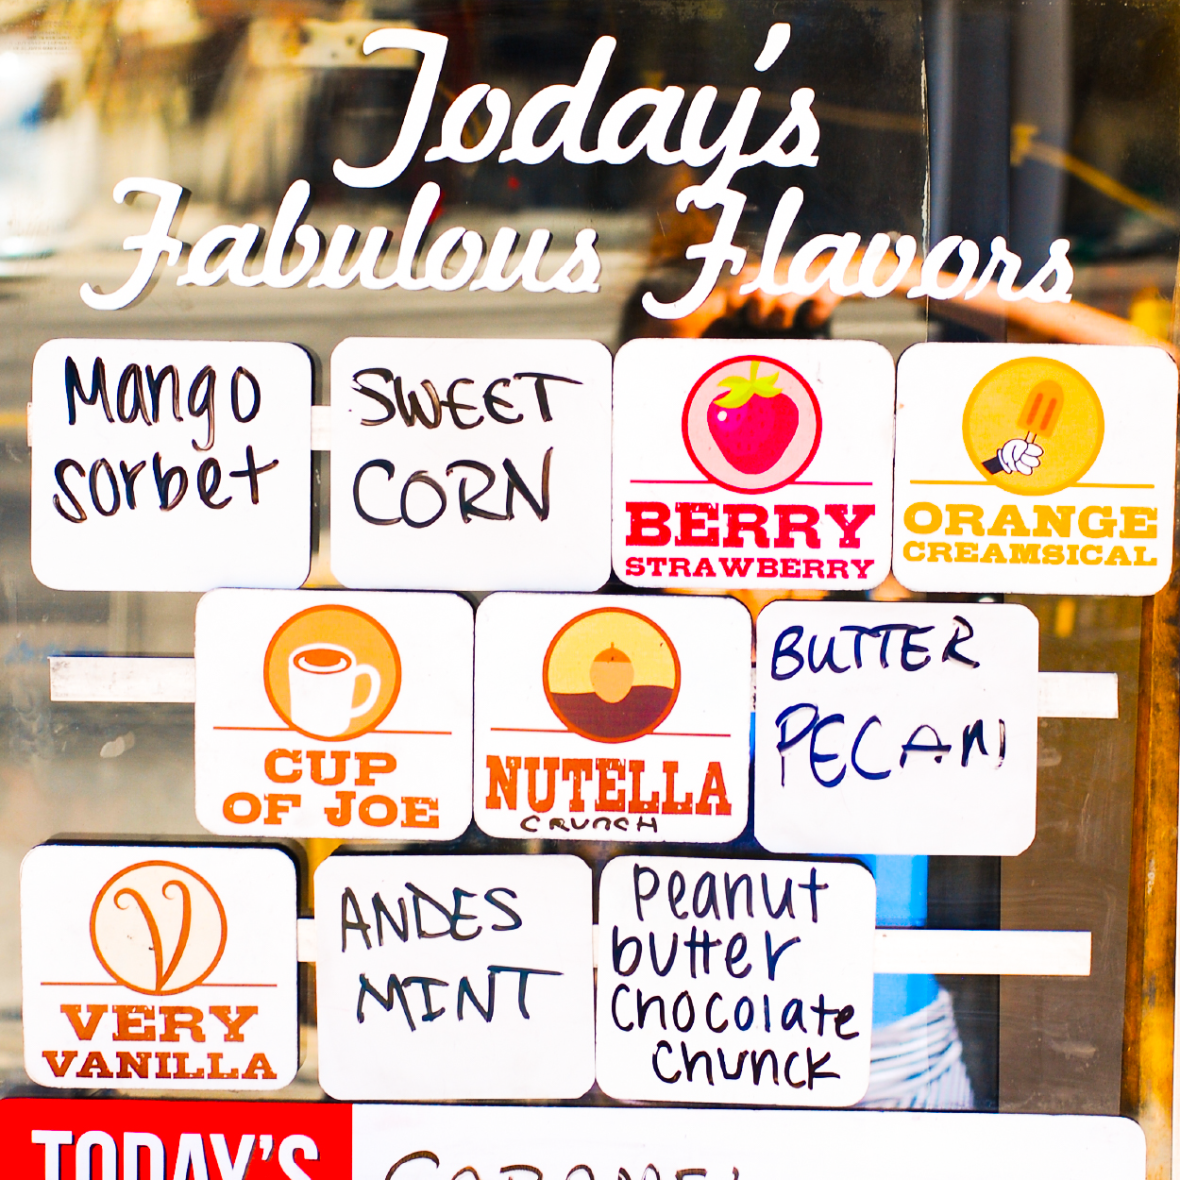 Today's
Fabulous Flavors
Mango
sorbet
SWEET
CORN
BERRY
STRAWBERRY
ORANGE
CREAMSICAL
CUP
OF JOE
NUTELLA
CRUNCH
BUTTER
PECAN
VERY
VANILLA
ANDES
MINT
Peanut
butter
Chocolate
Chunck
TODAY'S